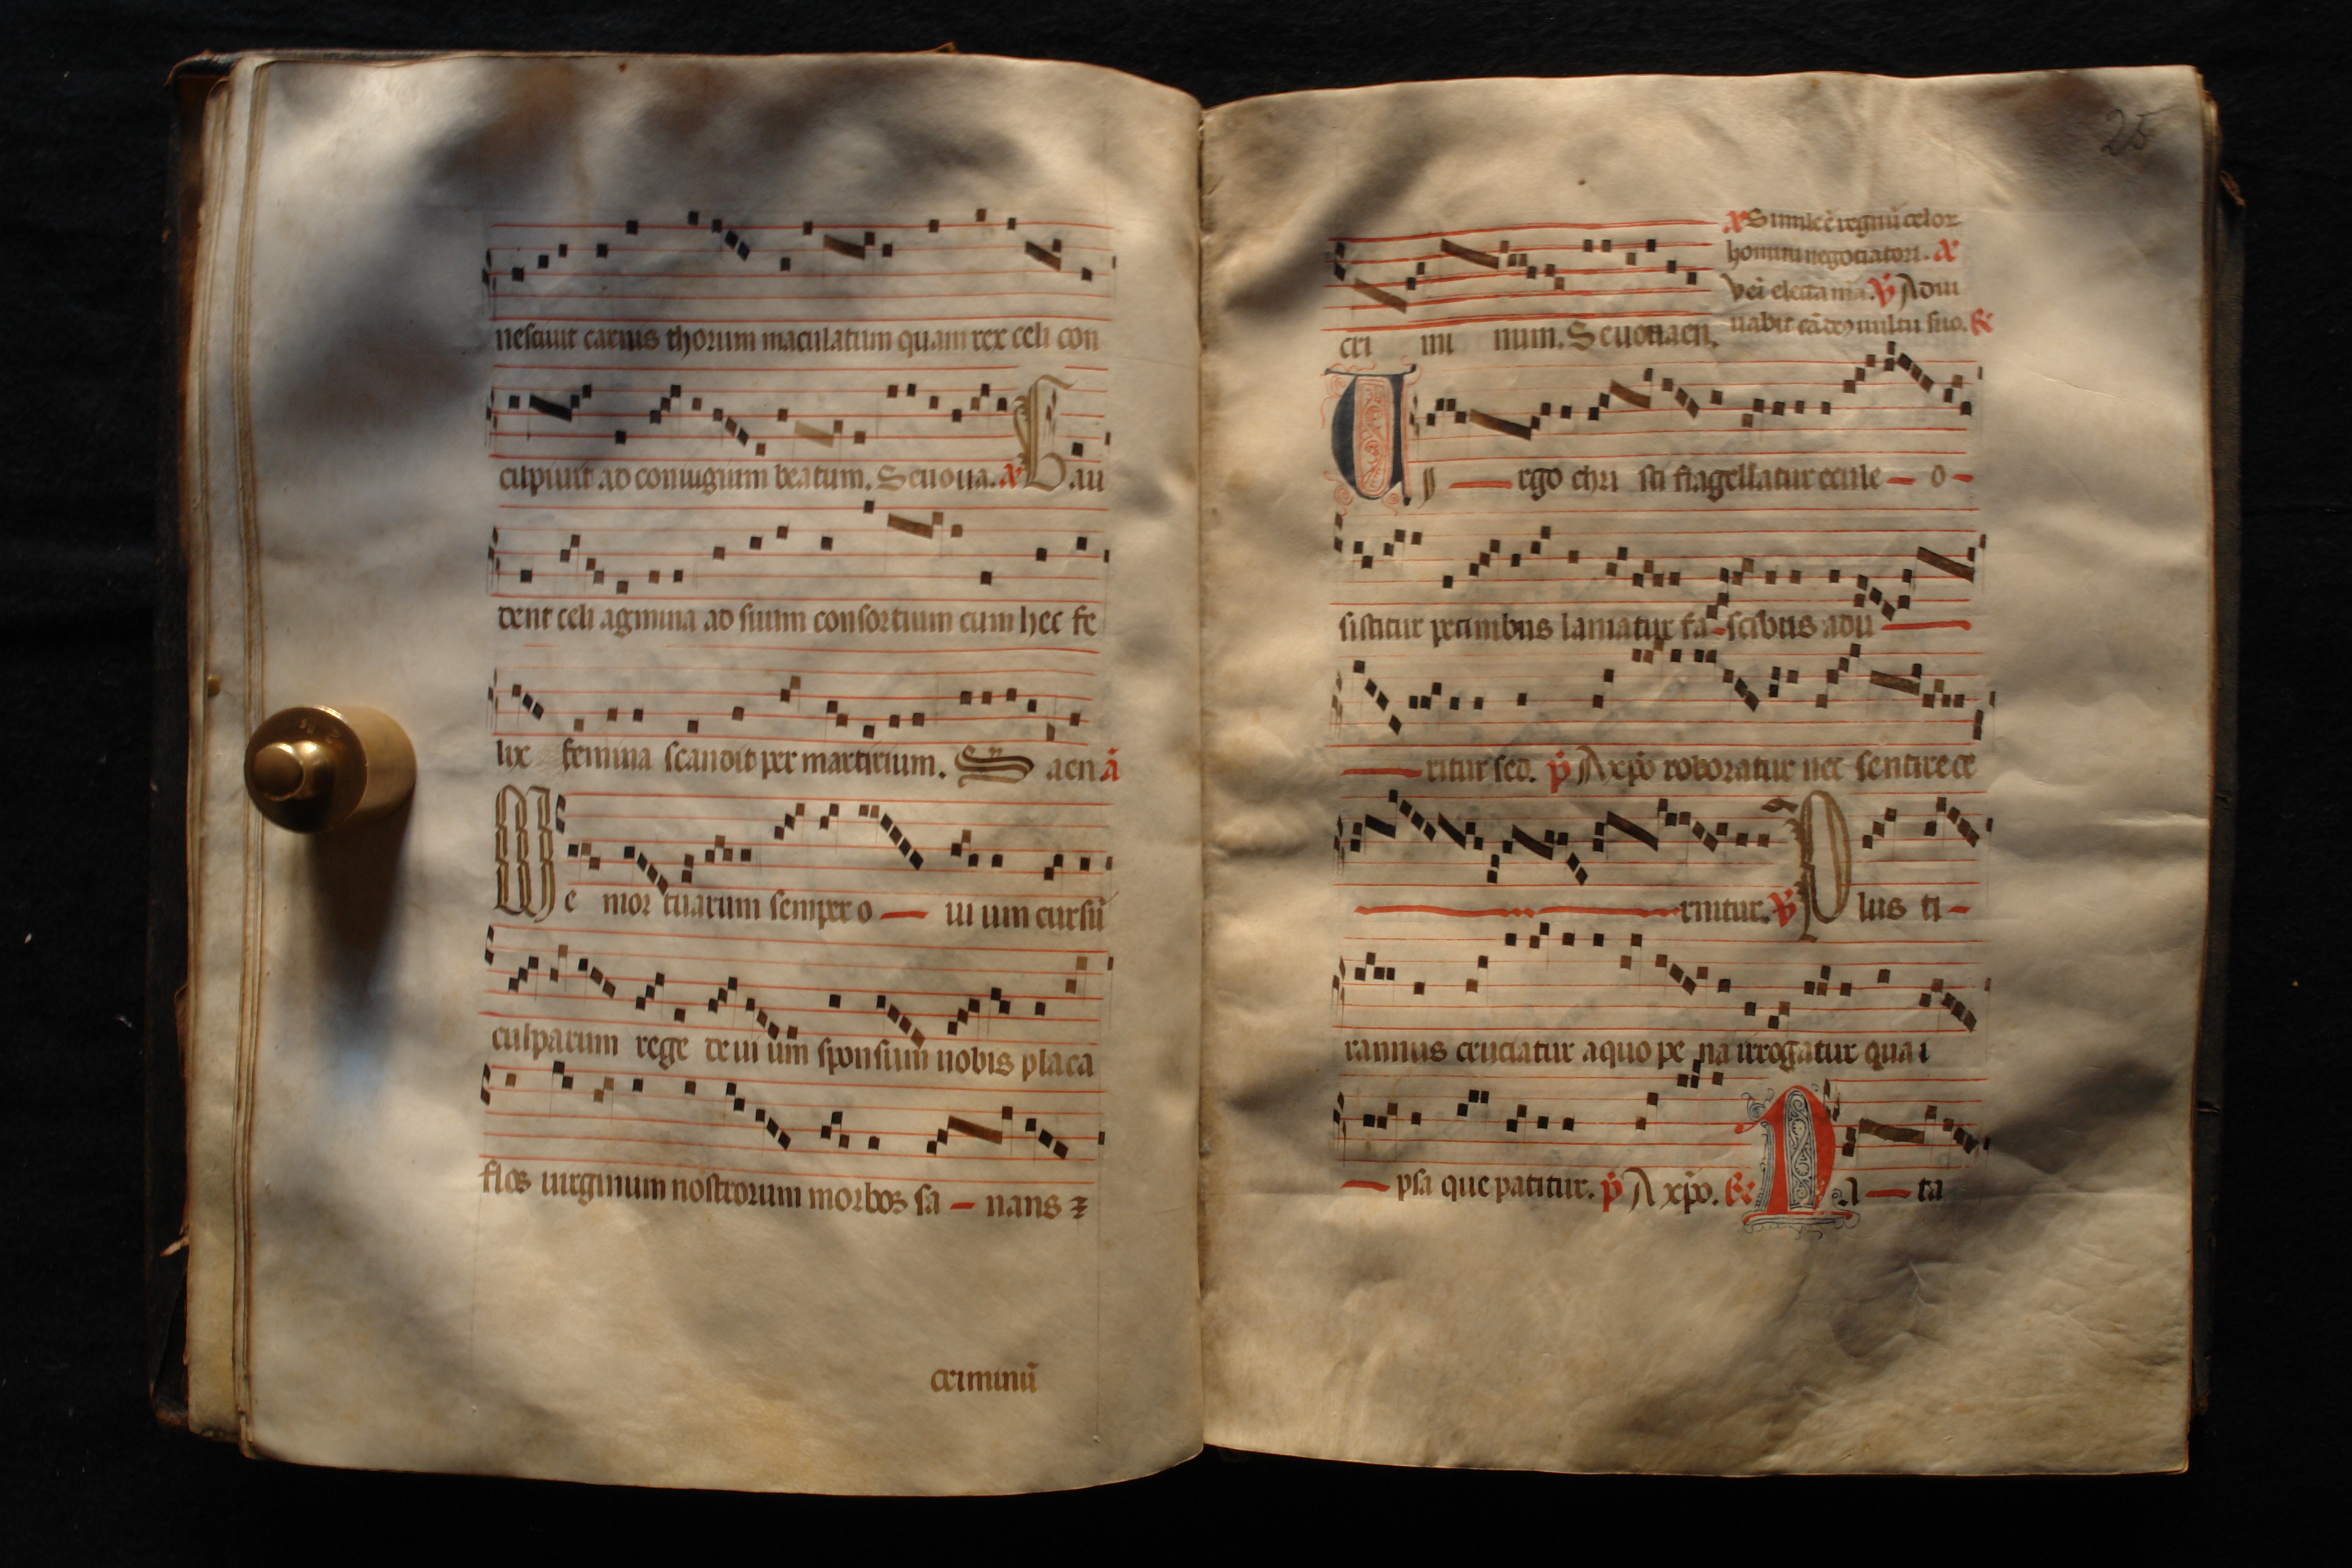 nesciuit carnis thorum maculatum quam rex celi con
cupiuit ad coniugium beatum. Seuoua. a Gau
dent celi agmina ad suum consortium cum hec fe
lix femina scandit per martirium. S aen a
Me mor tuarum semper o uium cursū
culparum rege deui um sponsum nobis placa
flos uirginum nostrorum morbos sa nans ⁊
criminū
25
Simile ē regnū celor
homini negotiatori.
Vēi electa mā. V Adiu
cri mi num. Seuouaen. uabit eā deꝰ uultu suo. R
Vi rgo chri sti flagellatur ecule o
sistitur pectinibus laniatur fa scibus adu
ritur sed. p̄ A xp̄o roboratur nec sentire ce
rnitur. V Plus ti
rannus cruciatur a quo pe na irrogatur qua i
psa que patitur. p̄ A xp̄o. R Na ta